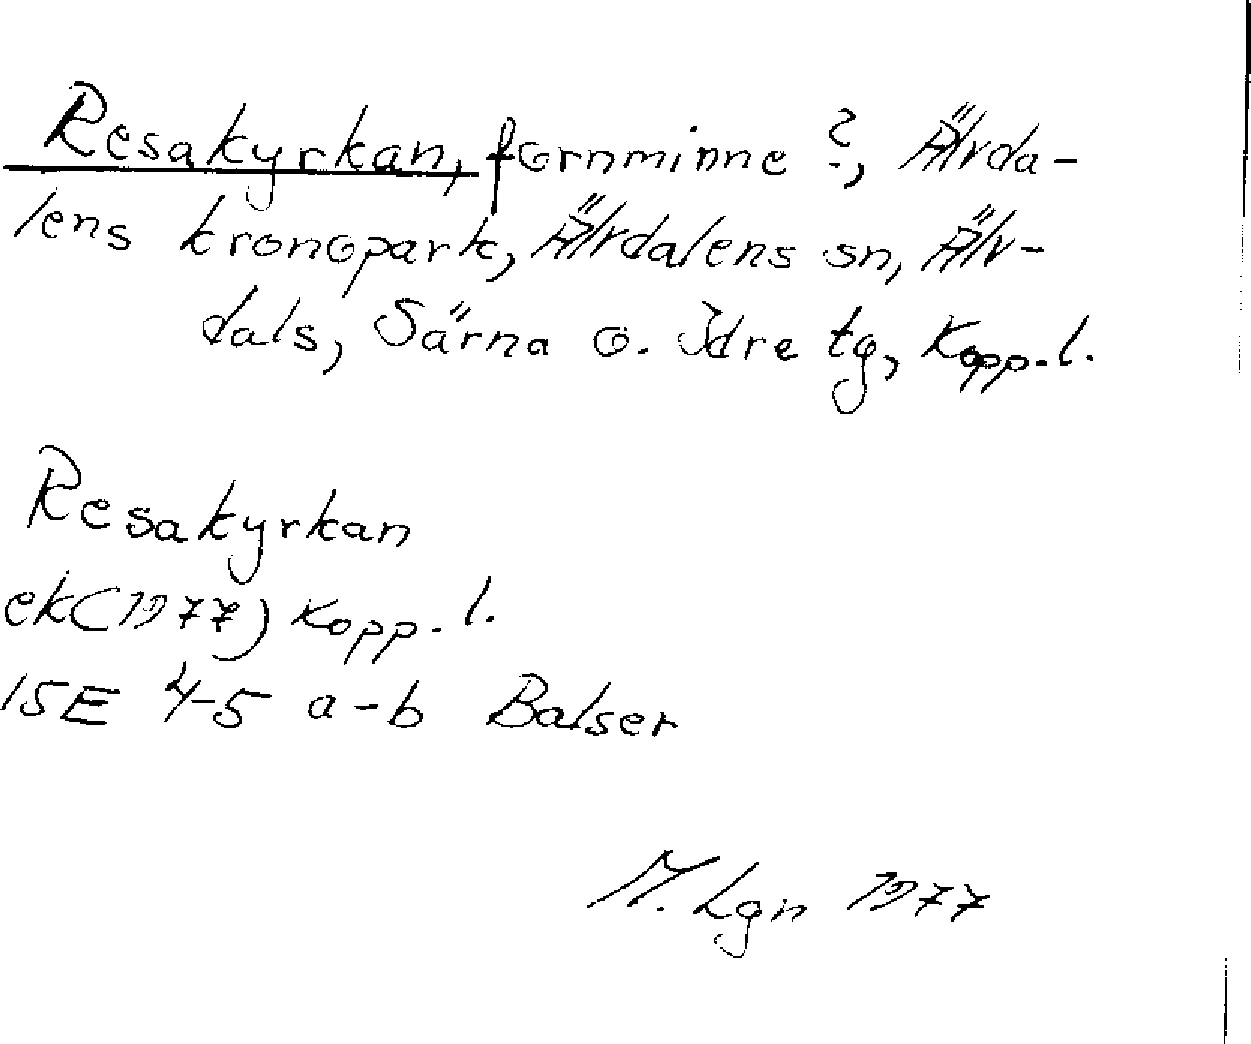 Resakyrkan, fornminne ?, Älvda-
lens kronopark, Älvdalens sn, Älv-
dals, Särna o. Idre tg, Kopp. l.
Resakyrkan
ek(1977) Kopp. l.
15E 4-5 a-b Balser
M. Lgn 1977